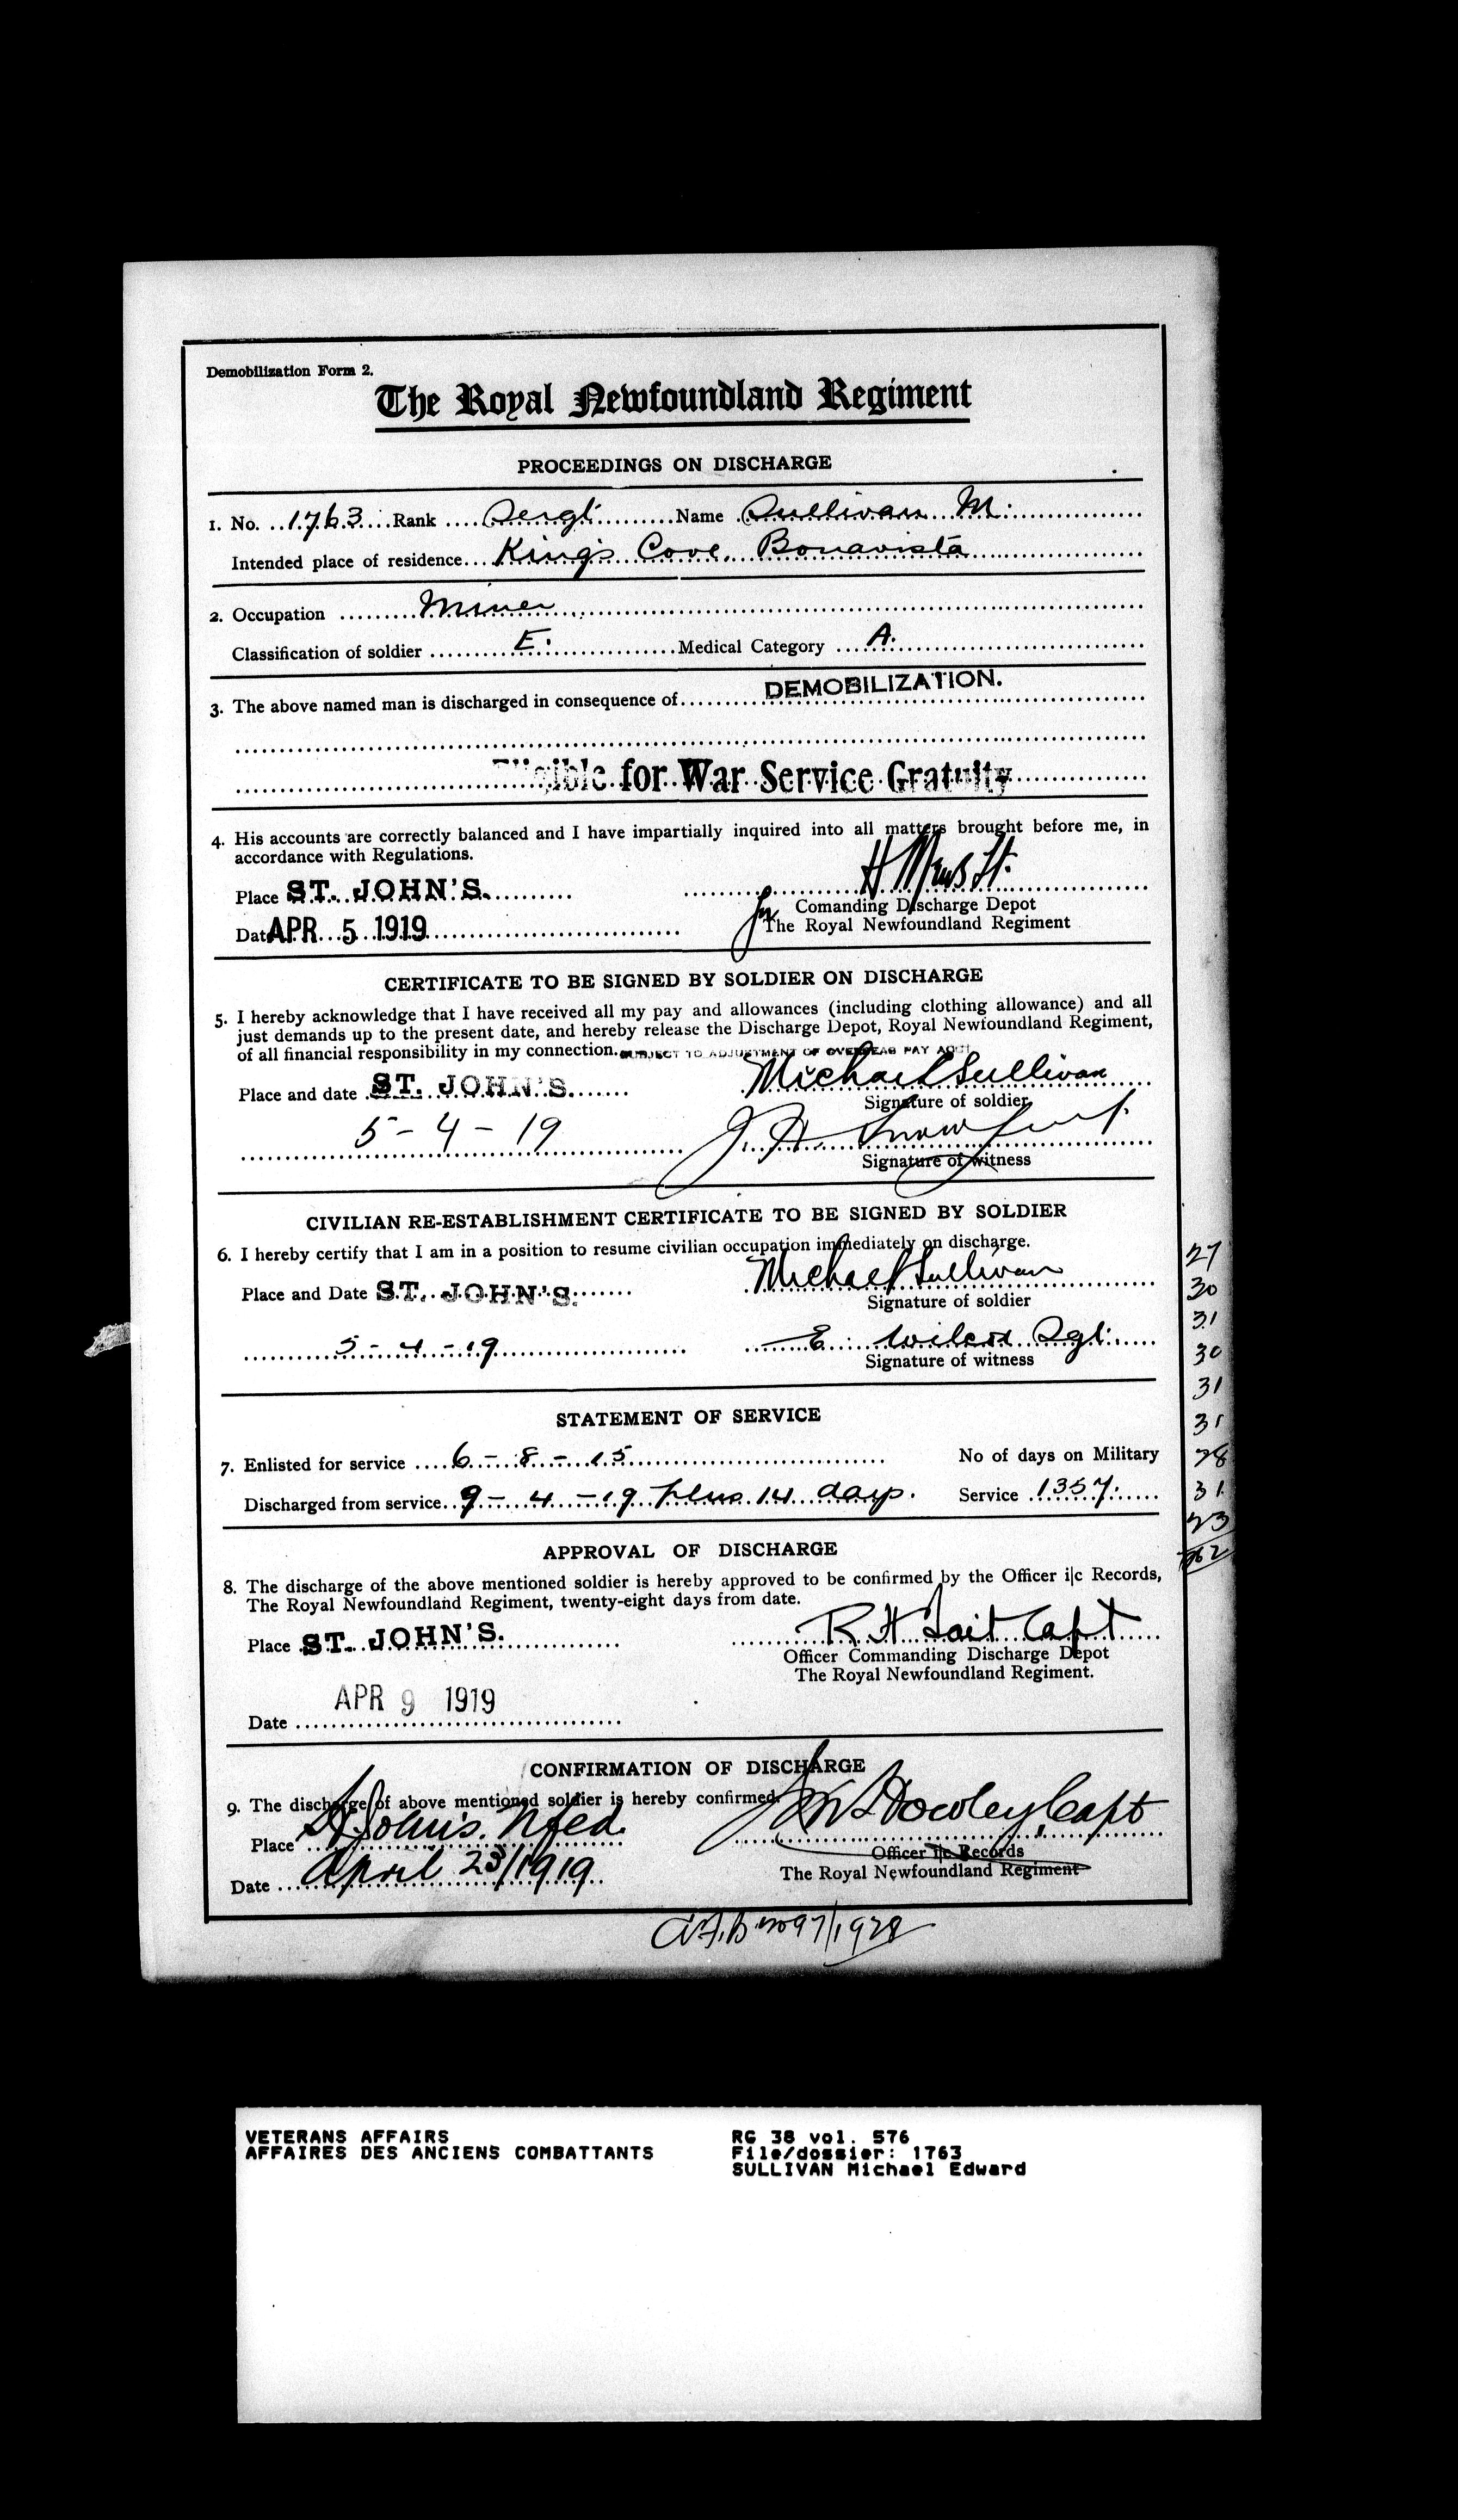 Demobilization Form 2.
The Royal Newfoundland Regiment
PROCEEDINGS ON DISCHARGE
1. No. 1763 Rank Sergt Name Sullivan M.
Intended place of residence King's Cove, Bonavista
2. Occupation Miner
Classification of soldier E. Medical Category A.
3. The above named man is discharged in consequence of DEMOBILIZATION.
Eligible for War Service Gratuity
4. His accounts are correctly balanced and I have impartially inquired into all matters brought before me, in
accordance with Regulations.
Place ST. JOHN'S.
for Comanding Discharge Depot
Date APR 5 1919
The Royal Newfoundland Regiment
CERTIFICATE TO BE SIGNED BY SOLDIER ON DISCHARGE
5. I hereby acknowledge that I have received all my pay and allowances (including clothing allowance) and all
just demands up to the present date, and hereby release the Discharge Depot, Royal Newfoundland Regiment,
of all financial responsibility in my connection. SUBJECT TO ADJUSTMENT OF OVERSEAS PAY ACCT
Place and date ST. JOHN'S. Michael Sullivan
Signature of soldier
5-4-19
Signature of witness
CIVILIAN RE-ESTABLISHMENT CERTIFICATE TO BE SIGNED BY SOLDIER
6. I hereby certify that I am in a position to resume civilian occupation immediately on discharge.
Place and Date ST. JOHN'S. Michael Sullivan
Signature of soldier
5-4-19 E. Wilcox Sgt.
Signature of witness
STATEMENT OF SERVICE
7. Enlisted for service 6-8-15 No of days on Military
Discharged from service 9-4-19 plus 14 days. Service 1357.
APPROVAL OF DISCHARGE
8. The discharge of the above mentioned soldier is hereby approved to be confirmed by the Officer i|c Records,
The Royal Newfoundland Regiment, twenty-eight days from date.
Place ST. JOHN'S. R H Tait Capt
Officer Commanding Discharge Depot
The Royal Newfoundland Regiment.
Date APR 9 1919
CONFIRMATION OF DISCHARGE
9. The discharge of above mentioned soldier is hereby confirmed.
Place St. John's. Nfld. Capt
Officer i|c Records
Date April 23/1919
The Royal Newfoundland Regiment
27
30
31
30
31
31
28
31
23
VETERANS AFFAIRS
AFFAIRES DES ANCIENS COMBATTANTS
RG 38 vol. 576
File/dossier: 1763
SULLIVAN Michael Edward